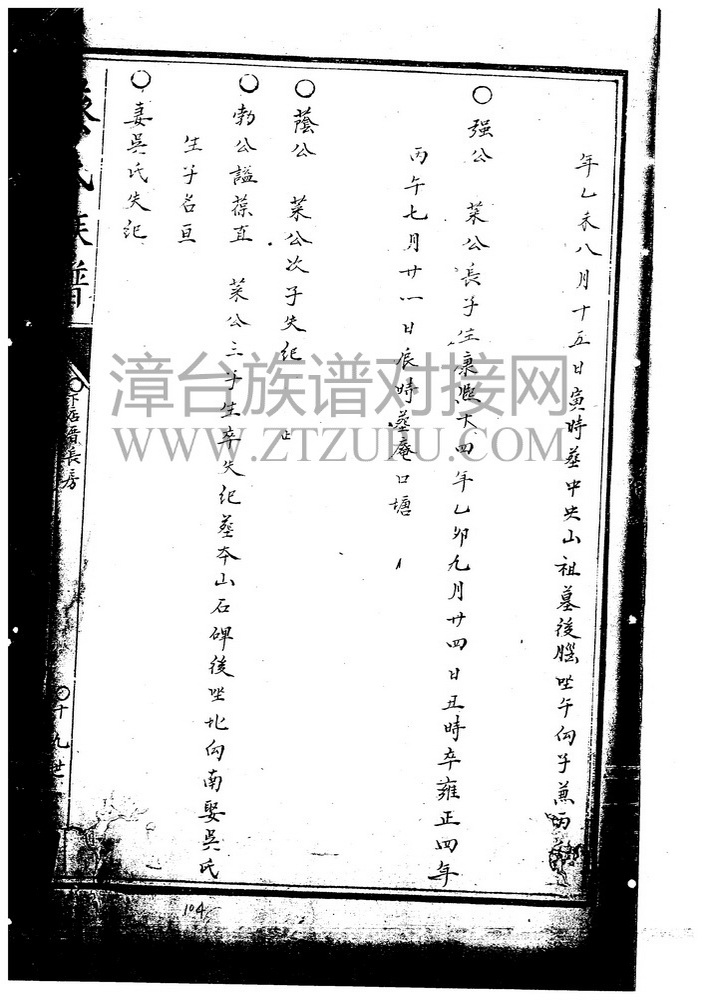 年乙未八月十五日寅時葬中央山祖墓後腦坐午向子兼丙
○強公 菜公長子生康熙十四年乙卯九月廿四日丑時卒雍正四年
丙午七月廿一日辰時葬庵口塘
○蔭公 菜公次子失紀
○勃公謚葆直 菜公三子生卒失紀葬本山石碑後坐北向南娶吳氏
生子名亘
○妻吳氏失紀
氏族譜
長房
○十九世
漳台族谱对接网
WWW.ZTZUPU.COM
104